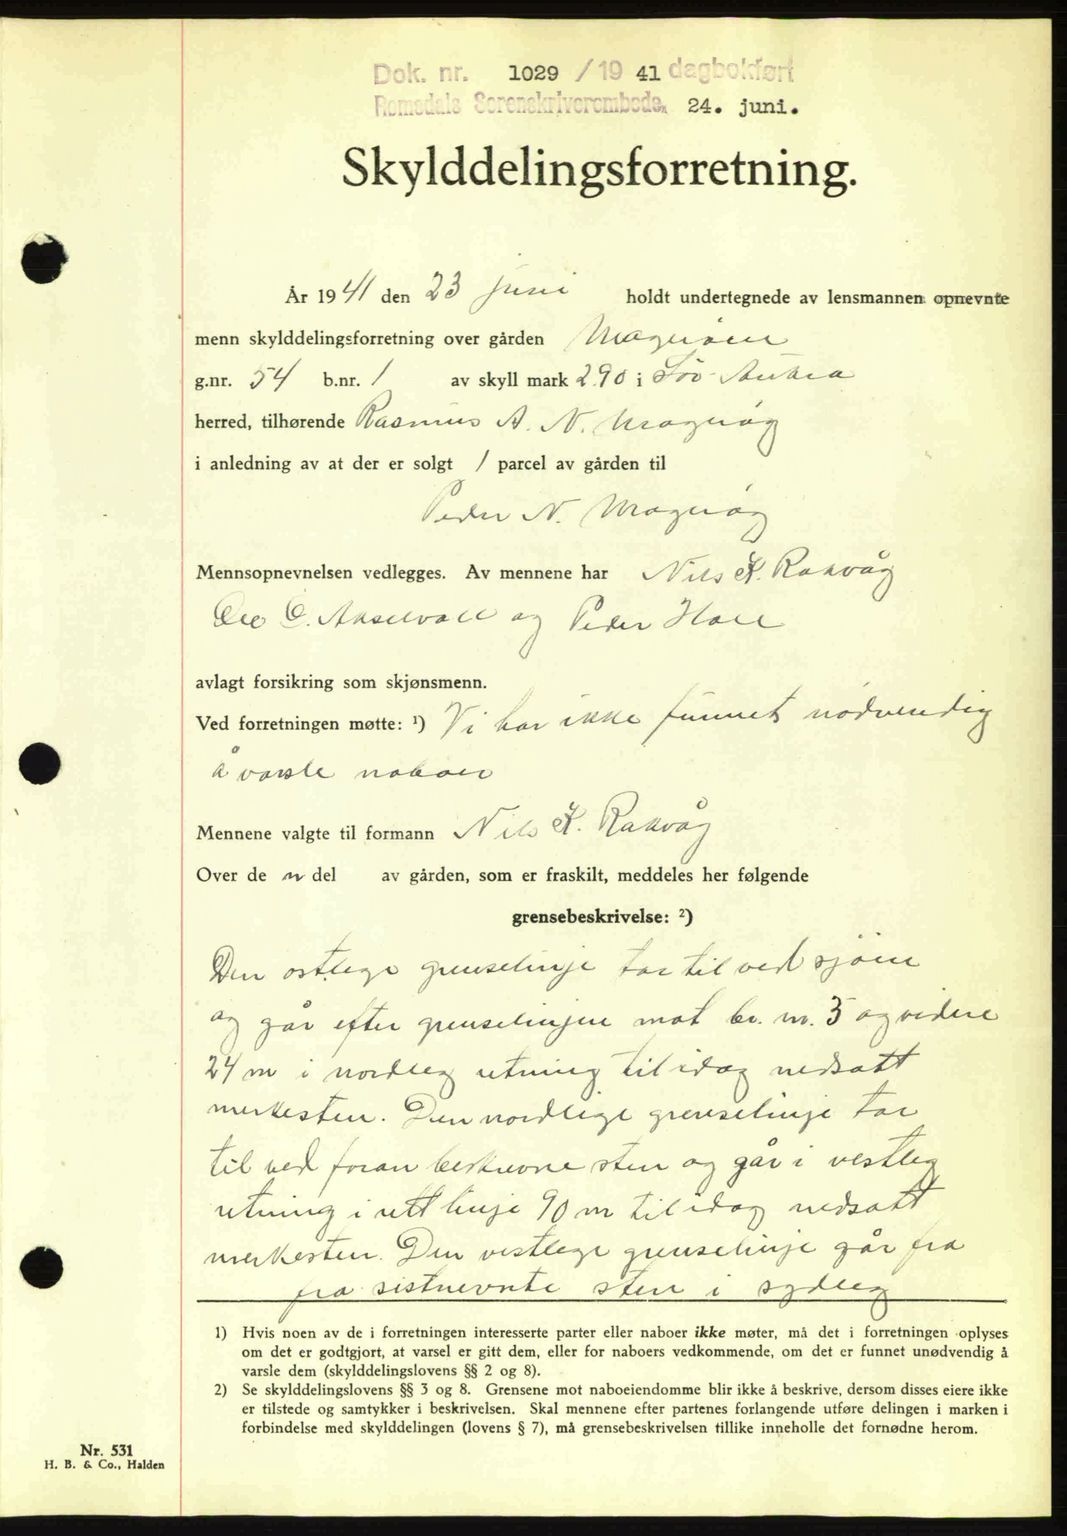 Dok. nr. 1029 / 19 41 dagbokført
Romsdals Sorenskriverembede, 24. juni.
Skylddelingsforretning.
År 1941 den 23 juni holdt undertegnede av lensmannen opnevnte
menn skylddelingsforretning over gården Magerøen
g.nr. 54 b.nr. 1 av skyll mark 2.90 i Sör-Aukra
herred, tilhørende Rasmus A. N. Magerøy
i anledning av at der er solgt 1 parcel av gården til
Peder N. Magerøy
Mennsopnevnelsen vedlegges. Av mennene har Nils K. Rakvåg
Ole O. Akselvoll og Peder Hoel
avlagt forsikring som skjønsmenn.
Ved forretningen møtte: ¹) Vi har ikke funnet nödvendig
å varsle naboer
Mennene valgte til formann Nils K. Rakvåg
Over de n del av gården, som er fraskilt, meddeles her følgende
grensebeskrivelse: ²)
Den östlege grenselinje tar til ved sjöen
og går efter grenselinjen mot br. nr. 5 og videre
24 m i nordleg retning til idag nedsatt
merkesten. Den nordlige grenselinje tar
til ved foran beskrevne sten og går i vestleg
retning i rett linje 90 m til idag nedsatt
merkesten. Den vestlege grenselinje går fra
fra sistnevnte sten i sydleg
1) Hvis noen av de i forretningen interesserte parter eller naboer ikke møter, må det i forretningen oplyses
om det er godtgjort, at varsel er gitt dem, eller for naboers vedkommende, om det er funnet unødvendig å
varsle dem (skylddelingslovens §§ 2 og 8).
2) Se skylddelingslovens §§ 3 og 8. Grensene mot naboeiendomme blir ikke å beskrive, dersom disses eiere ikke
er tilstede og samtykker i beskrivelsen. Skal mennene efter partenes forlangende utføre delingen i marken i
forbindelse med skylddelingen (lovens § 7), må grensebeskrivelsen tillike inneholle det fornødne herom.
Nr. 531
H. B. & Co., Halden